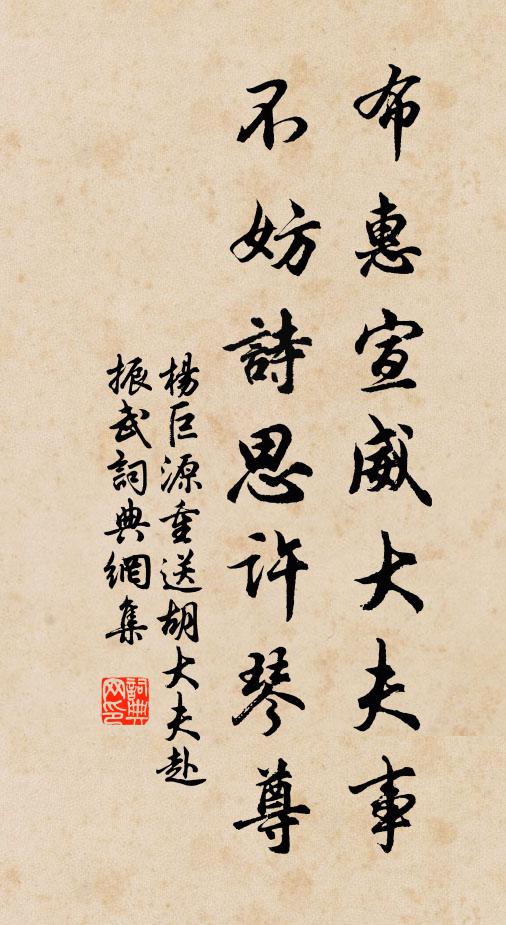 布惠宣威大夫事
不妨詩思許琴尊
楊巨源重送胡大夫赴
振武詞典網集
詞典
网印